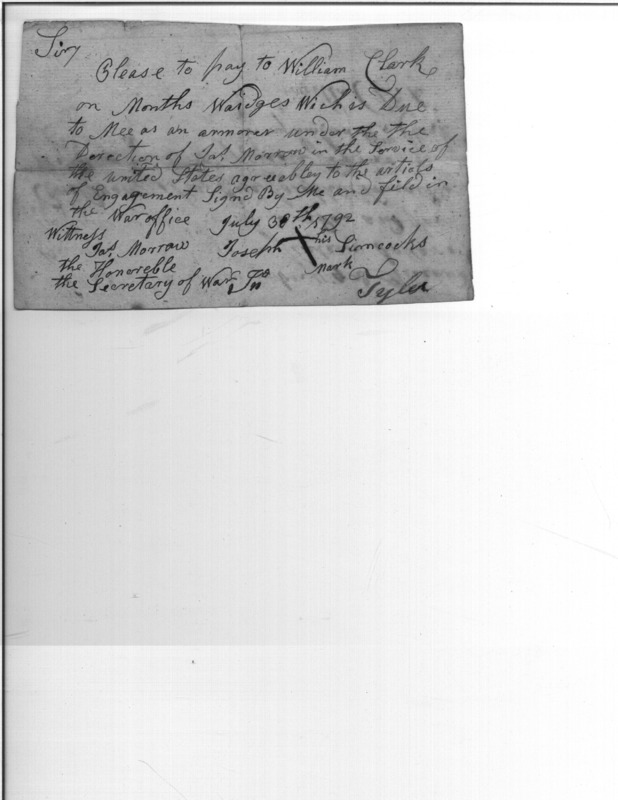 Sir,
Please to pay to William Clark
on Months Waidges Wich is Due
to Mee as an armorer under the the
Derection of Jas. Morrow in the Service of
the united States agreeabley to the articls
of Engagement Signd By Me and fild in
the War office July 30th 1792
Wittness
Jas. Morrow Joseph X his Simcocks
the Honoreble mark
the Secretary of War
Tyler